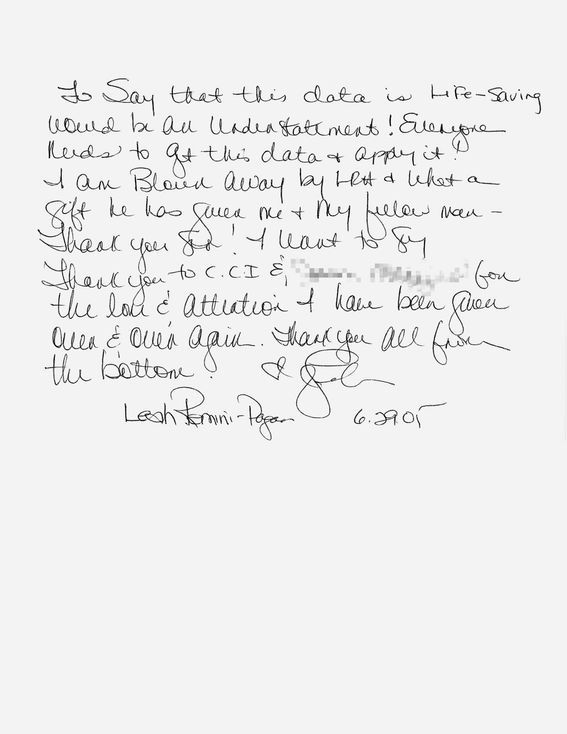 To Say that this data is Life-Saving
would be an Understatement! Everyone
Needs to get this data & apply it!
I am Blown Away by LRH & what a
gift he has given me & my fellow man -
Thank you Sir! I want to Say
Thank you to C.C.I & for
the love & Attention I have been given
Over & Over Again. Thank you All from
the bottom.
Leah Remini-Pagan 6.29.05